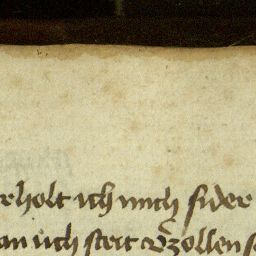 rholt ich mich sider
an üch stett erzollen s